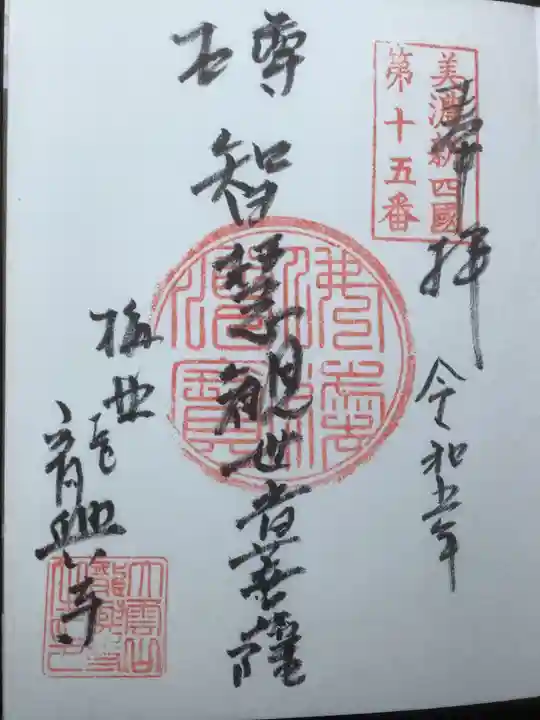 美濃新四國
第十五番
奉拝
令和五年
本尊
智慧観世音菩薩
龍興寺
佛法僧寶